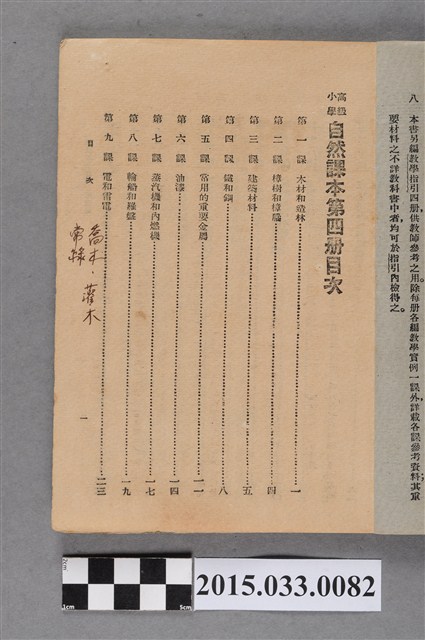 八 本書另編教學指引四册,供教師參考之用。除每册各編教學實例一課外,詳載各課參考資料;其重
要材料之不詳教科書中者,均可於指引內檢得之。
高級小學 自然課本第四册目次
第一課 木材和造林 一
第二課 樟樹和樟腦 四
第三課 建築材料 五
第四課 鐵和鋼 八
第五課 常用的重要金屬 一一
第六課 油漆 一四
第七課 蒸汽機和內燃機 一七
第八課 輪船和羅盤 一九
第九課 電和雷電 二三
喬木,灌木
常綠
目次
一
2cm
1cm
5cm
2015.033.0082